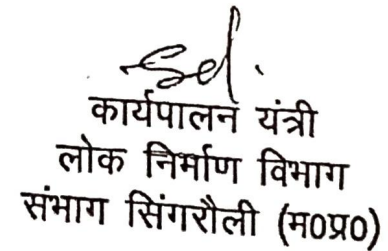 Sd.
कार्यपालन यंत्री
लोक निर्माण विभाग
संभाग सिंगरौली (म०प्र०)